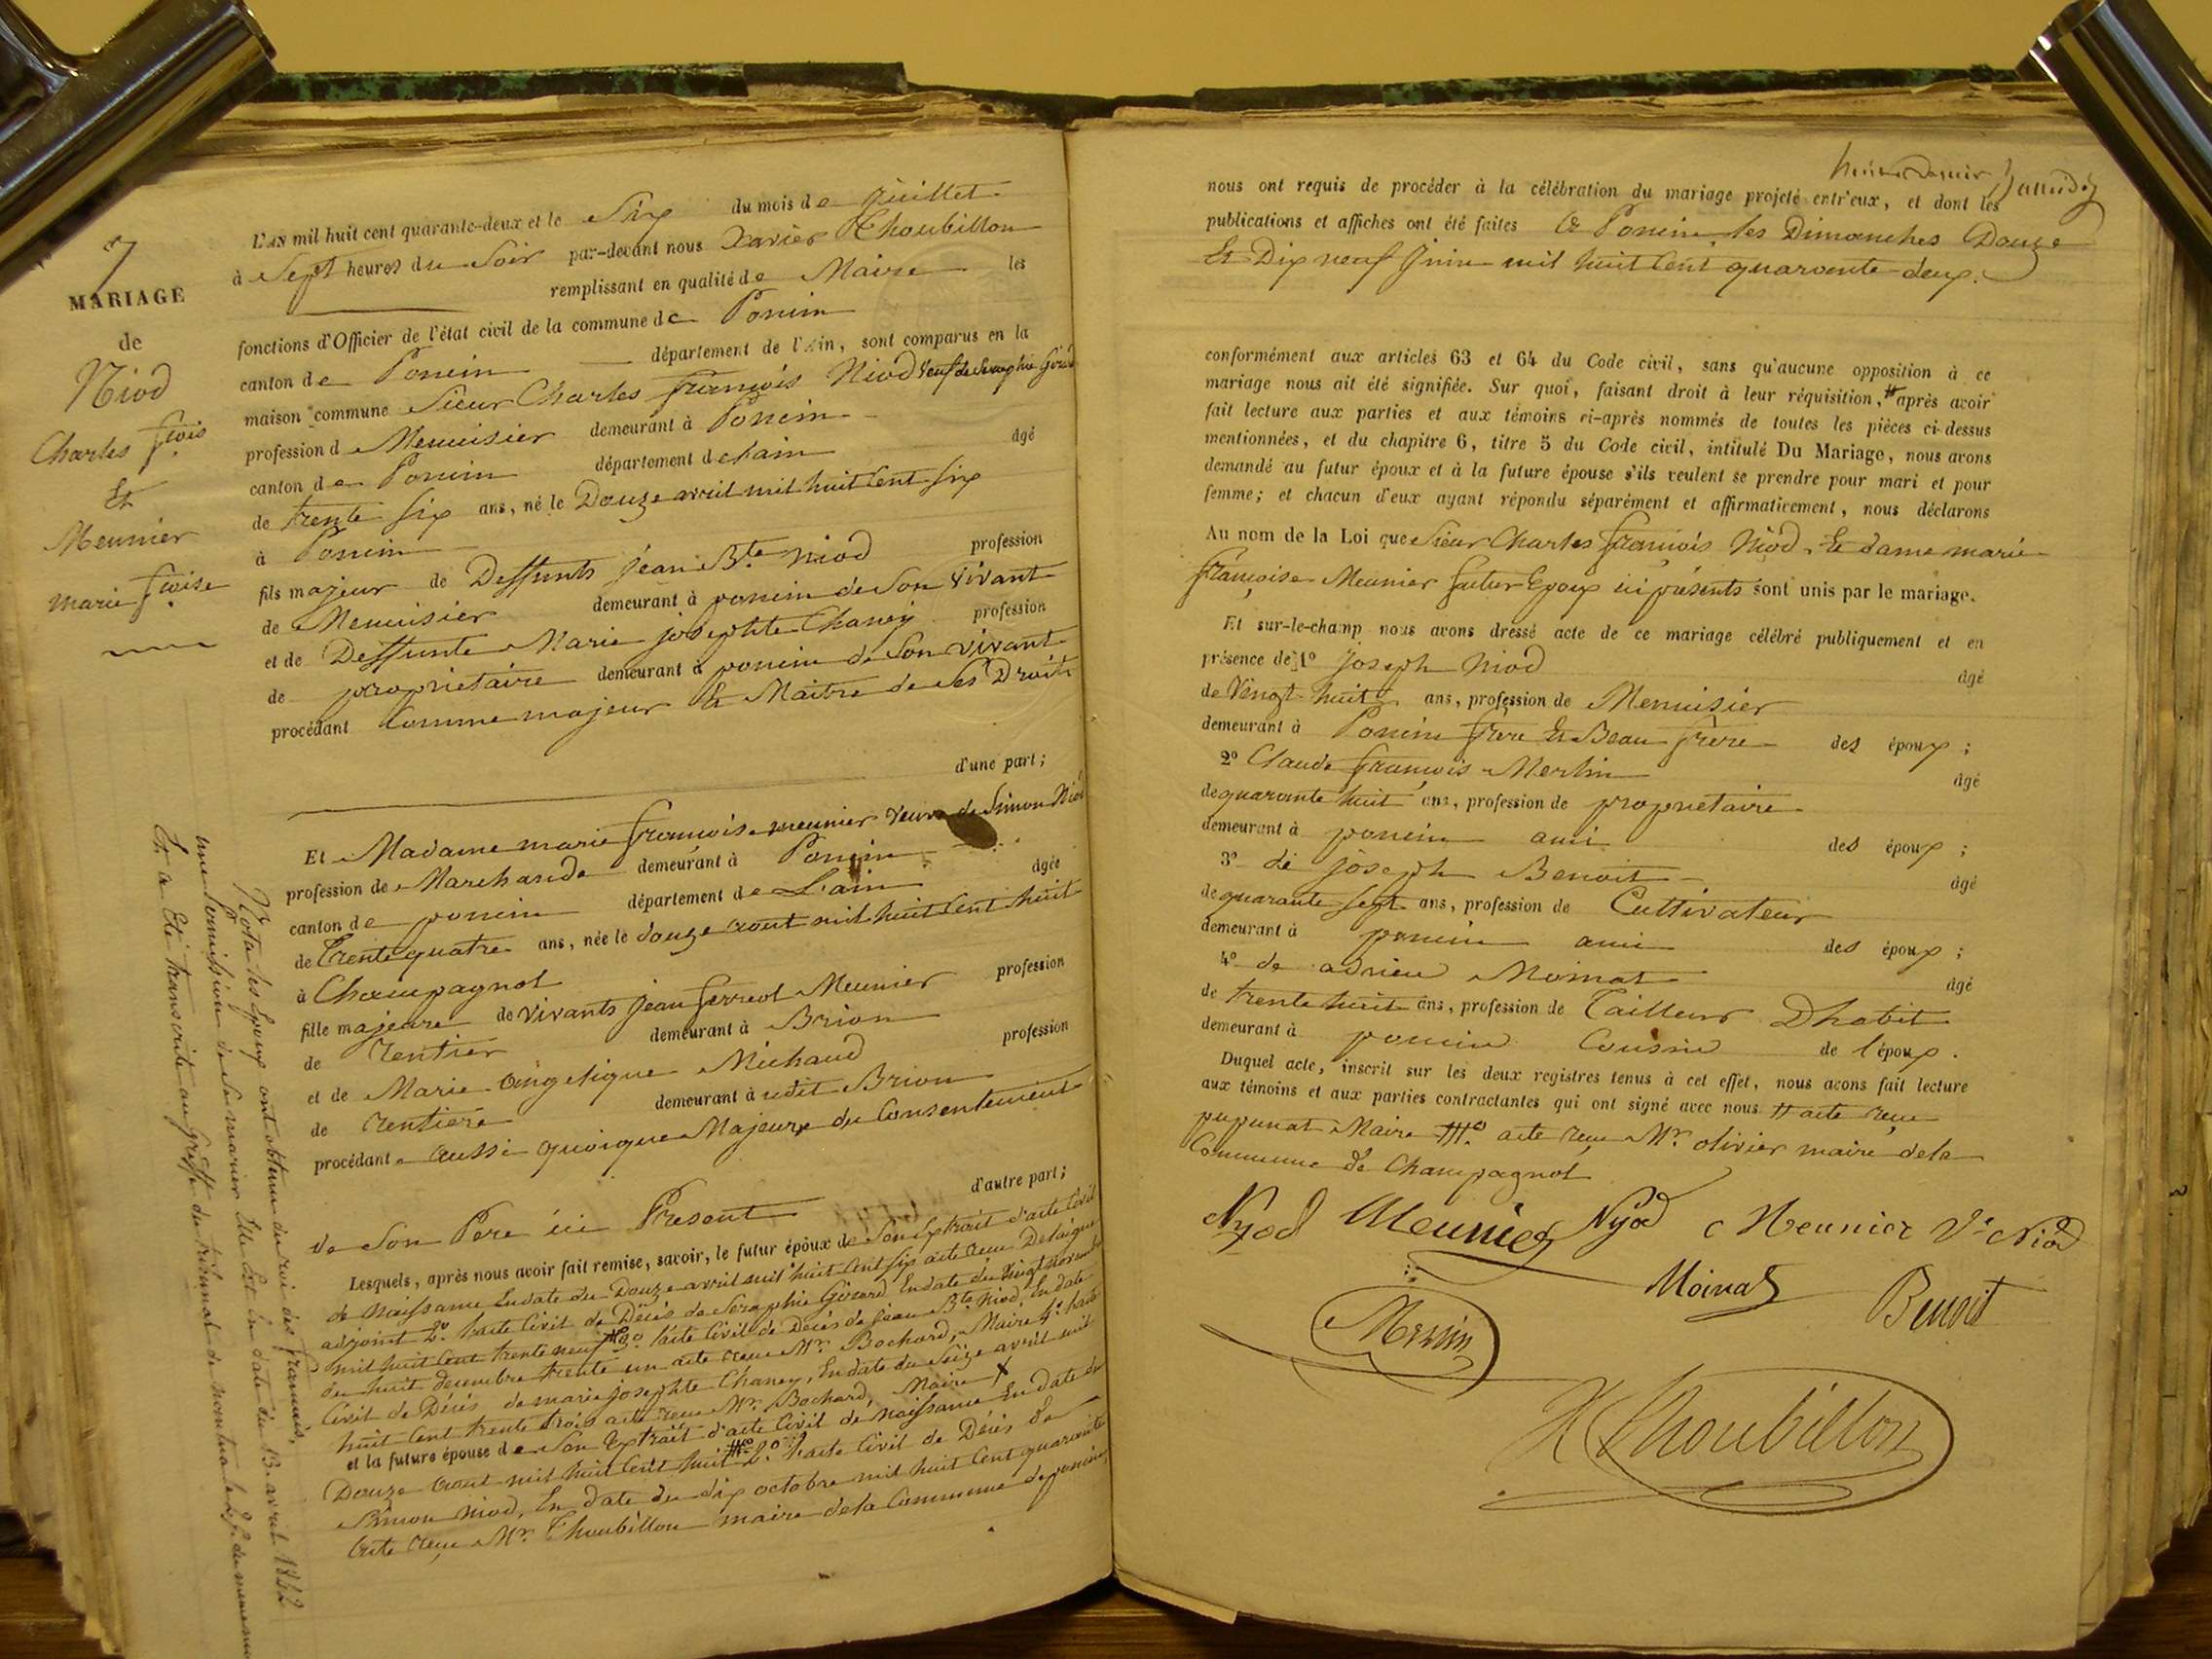 7
MARIAGE
de
Niod
Charles fcois
Et
Meunier
marie fcoise
L'AN mil huit cent quarante-deux et le Six du mois de Juillet
à Sept heures du Soir par-devant nous Xavier Thoubillon
remplissant en qualité de Maire les
fonctions d'Officier de l'état civil de la commune de Poncin
canton de Poncin département de l'Ain, sont comparus en la
maison commune Sieur Charles françois Niod Veuf de Seraphie Girard
profession d Menuisier demeurant à Poncin
canton de Poncin département de Lain âgé
de trente six ans, né le Douze avril mil huit Cent six
à Poncin
fils majeur de Deffunts jean Bte Niod profession
de Menuisier demeurant à poncin de Son Vivant
et de Deffunte Marie josephte Chaney profession
de propriétaire demeurant à poncin de Son vivant
procédant Comme majeur Et Maitre de Ses Droits
d'une part;
Et Madame marie françoise meunier Veuve de Simon Niod
profession de Marchande demeurant à Poncin
canton de poncin département de L'ain âgée
de Trente quatre ans, née le douze aout mil huit Cent huit
à Champagnol
fille majeure de Vivants jean ferreol Meunier profession
de rentier demeurant à Brion
et de Marie Angelique Michaud profession
de rentiere demeurant à udit Brion
procédant aussi quoique Majeure du Consentement
de Son Pere ici Present d'autre part;
Lesquels, après nous avoir fait remise, savoir, le futur époux de Son Extrait d'acte Civil
de Naissance Endate du Douze avril mil huit Cent six acte recu Delaigue
adjoint 2º lacte Civil de Décès de Seraphie Girard Endate du Vingt novembre
mil huit Cent trente neuf # 3º lacte Civil de Decès de jean Bte Niod, En date
du huit decembre trente un acte recu Mr. Bochard, Maire 4º lacte
Civil de Décès de marie josephte Chaney, Endate du Seize avril mil
huit Cent trente trois acte recu Mr. Bochard, Maire X
et la future épouse de Son Extrait d'acte Civil de Naissance En date du
Douze aout mil huit Cent huit # 2º lacte Civil de Décès de
Simon Niod, En date du dix octobre mil huit Cent quarante
acte recu Mr. Thoubillon maire dela Commune de poncin
Nota les Epoux ont obtenu du roi des francais,
une permission de Se marier Elle Est En date du 13. avril 1842
Et a Eté transcrite au Greffe du tribunal de nantua le 27. du meme mois
nous ont requis de procéder à la célébration du mariage projeté entr'eux, et dont les
publications et affiches ont été faites a Poncin, les Dimanches Douze
Et Dix neuf Juin mil huit Cent quarante deux.
conformément aux articles 63 et 64 du Code civil, sans qu'aucune opposition à ce
mariage nous ait été signifiée. Sur quoi, faisant droit à leur réquisition, # après avoir
fait lecture aux parties et aux témoins ci-après nommés de toutes les pièces ci-dessus
mentionnées, et du chapitre 6, titre 5 du Code civil, intitulé Du Mariage, nous avons
demandé au futur époux et à la future épouse s'ils veulent se prendre pour mari et pour
femme; et chacun d'eux ayant répondu séparément et affirmativement, nous déclarons
Au nom de la Loi que Sieur Charles françois Niod, Et dame marie
françoise Meunier futur Epoux ici présents sont unis par le mariage.
Et sur-le-champ nous avons dressé acte de ce mariage célébré publiquement et en
présence de 1º Joseph Niod âgé
de Vingt huit ans, profession de Menuisier
demeurant à Poncin frère Et Beau frère des époux;
2º Claude françois Merlin âgé
de quarante huit ans, profession de propriétaire
demeurant à poncin ami des époux;
3º de joseph Benoit âgé
de quarante sept ans, profession de Cultivateur
demeurant à poncin ami des époux;
4º de adrien Moinat âgé
de trente huit ans, profession de Tailleur Dhabit
demeurant à poncin Cousin de l'époux.
Duquel acte, inscrit sur les deux registres tenus à cet effet, nous avons fait lecture
aux témoins et aux parties contractantes qui ont signé avec nous. # acte recu
pupunat Maire # acte recu Mr. olivier maire dela
Commune de Champagnol
Nyod Meunier Nyod c Meunier Ve Niod
Moinat Benoit
Merlin
X Thoubillon